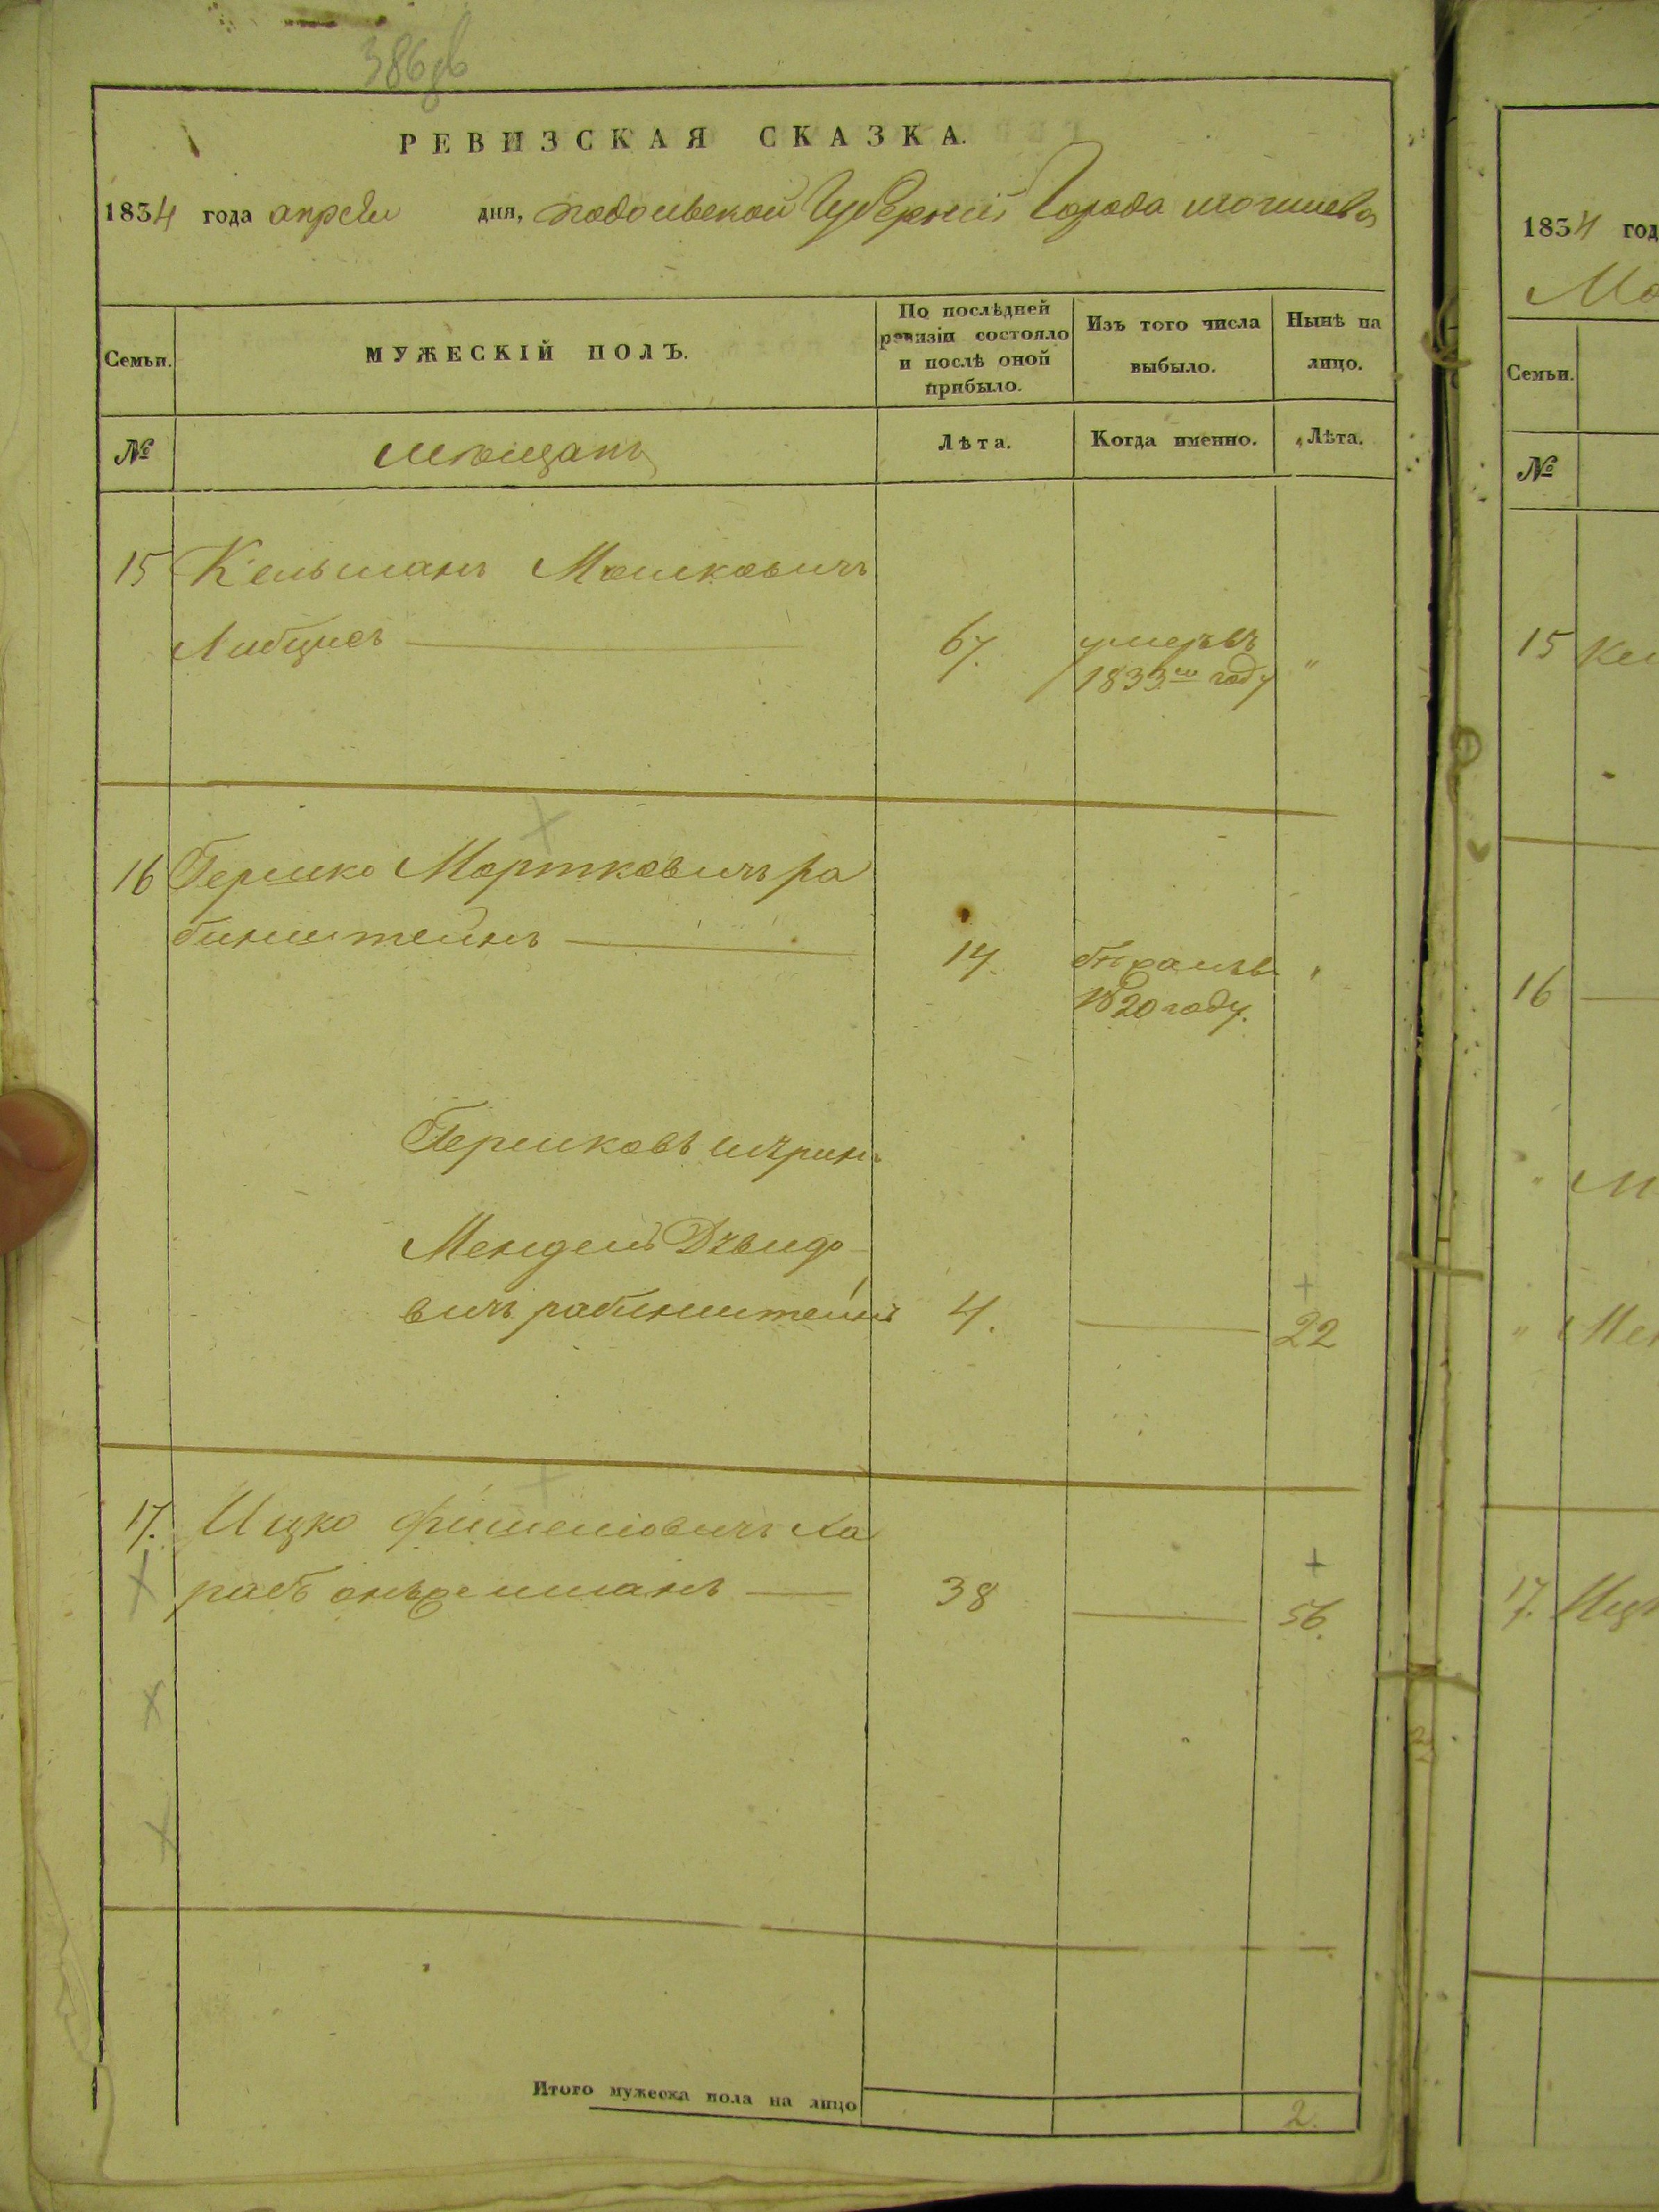 386об
РЕВИЗСКАЯ СКАЗКА.
1834 года апреля дня, подольской Губернии Города могилева
Семьи.
МУЖЕСКІЙ ПОЛЪ.
По послѣдней ревизіи состояло и послѣ оной прибыло.
Изъ того числа выбыло.
Нынѣ на лицо.
№
мѣщанъ
Лѣта.
Когда именно.
Лѣта.
15 Кельманъ Мошковичъ
Либцисъ 67. умеръ въ "
1833мъ году
16 Гершко Мортковичъ ра
бинштейнъ 17.
1820 году.
Гершковъ шуринъ
Мендель Дávидо
вичъ рабинштейнъ 4. 22
17. Ицко Фишелiовичъ ха
38 56.
Итого мужеска пола на лицо 2.
1834 год
Семьи.
№
15
16
"
"
17.